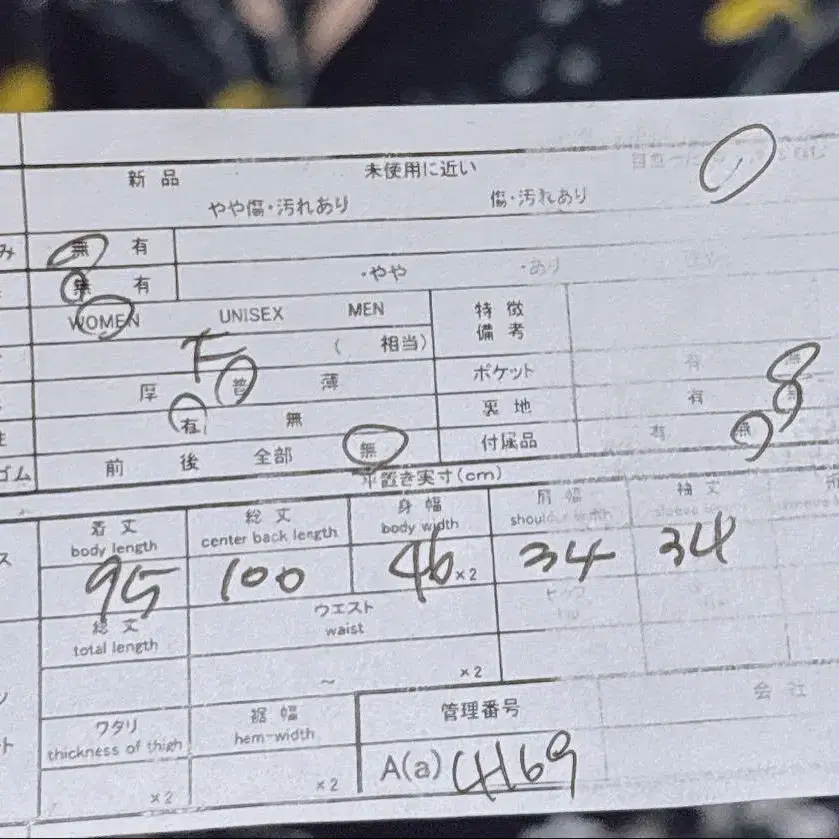 新品 未使用に近い
やや傷・汚れあり 傷・汚れあり
み 無 有
無 有 ・やや ・あり
WOMEN UNISEX MEN 特徴
備考
F ( 相当)
厚 普 薄 ポケット 有 無
有 無 裏地 有 無
ゴム 前 後 全部 無 付属品 有 無
平置き実寸(cm)
ス 着丈 総丈 身幅 肩幅 袖丈
body length center back length body width shoulder width
95 100 46 ×2 34 34
総丈 ウエスト ヒップ
total length waist
~ ×2
ワタリ 裾幅 管理番号 会社
thickness of thigh hem-width
×2 ×2 A(a) 4169